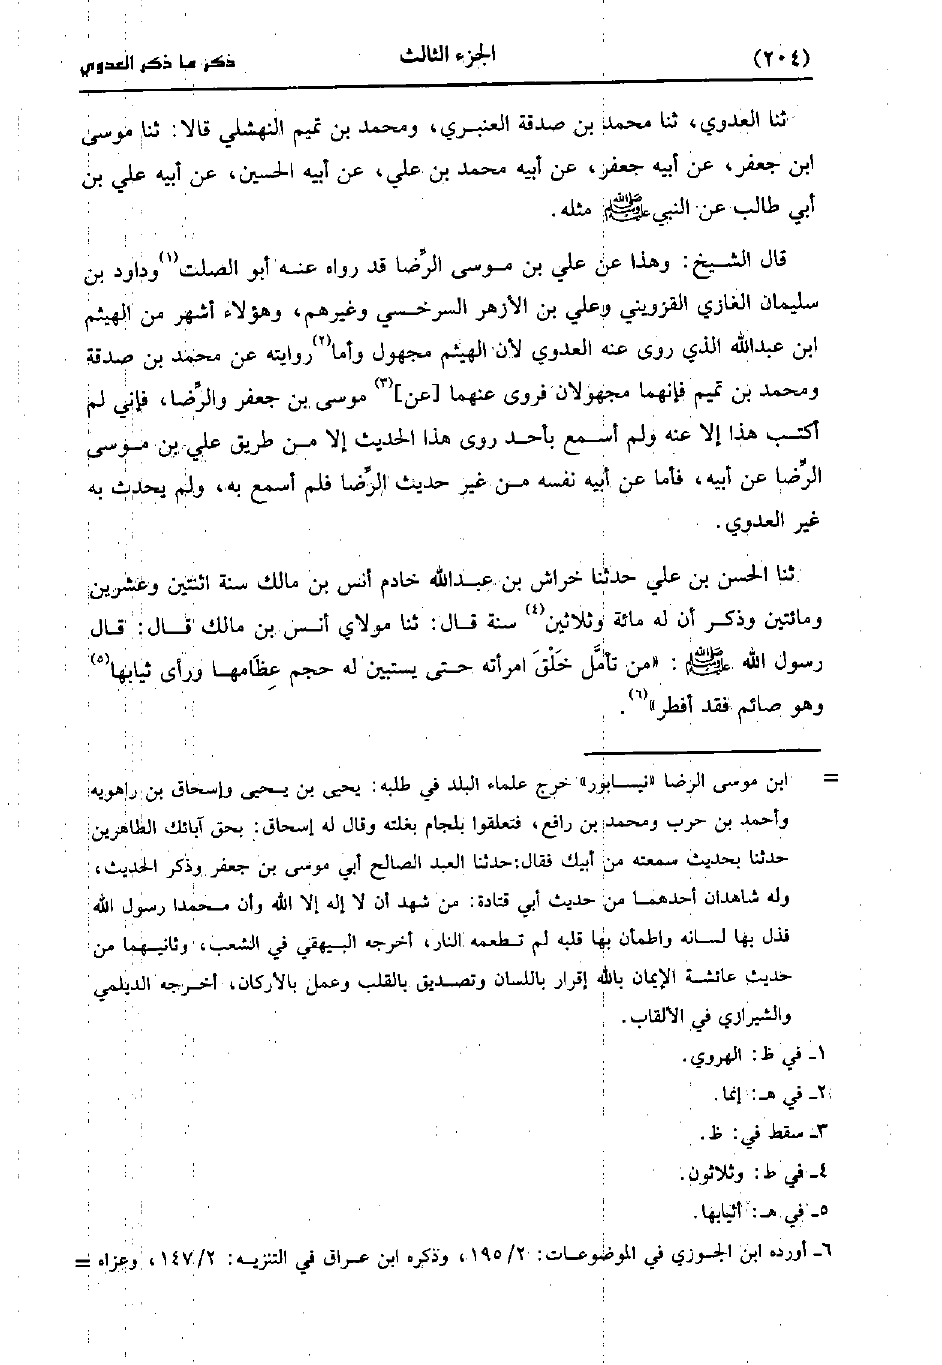 (٢٠٤) الجزء الثالث ذكر ما ذكر العدوي
ثنا العدوي، ثنا محمد بن صدقة العنبري، ومحمد بن تميم النهشلي قالا: ثنا موسى
ابن جعفر، عن أبيه جعفر، عن أبيه محمد بن علي، عن أبيه الحسين، عن أبيه علي بن
أبي طالب عن النبي ﷺ مثله.
قال الشيخ: وهذا عن علي بن موسى الرِّضا قد رواه عنه أبو الصلت(١) وداود بن
سليمان الغازي القزويني وعلي بن الأزهر السرخسي وغيرهم، وهؤلاء أشهر من الهيثم
ابن عبدالله الذي روى عنه العدوي لأن الهيثم مجهول وأما(٢) روايته عن محمد بن صدقة
ومحمد بن تميم فإنهما مجهولان فروى عنهما [عن](٣) موسى بن جعفر والرِّضا، فإني لم
أكتب هذا إلا عنه ولم أسمع بأحد روى هذا الحديث إلا من طريق علي بن موسى
الرِّضا عن أبيه، فأما عن أبيه نفسه من غير حديث الرِّضا فلم أسمع به، ولم يحدث به
غير العدوي.
ثنا الحسن بن علي حدثنا خراش بن عبدالله خادم أنس بن مالك سنة اثنتين وعشرين
ومائتين وذكر أن له مائة وثلاثين(٤) سنة قال: ثنا مولاي أنس بن مالك قال: قال
رسول الله ﷺ: «من تأمَّل خَلْقَ امرأته حتى يستبين له حجم عِظَامها ورأى ثيابها(٥)
وهو صائم فقد أفطر»(٦).
= ابن موسى الرضا «نيسابور» خرج علماء البلد في طلبه: يحيى بن يحيى وإسحاق بن راهويه
وأحمد بن حرب ومحمد بن رافع، فتعلقوا بلجام بغلته وقال له إسحاق: بحق آبائك الطاهرين
حدثنا بحديث سمعته من أبيك فقال: حدثنا العبد الصالح أبي موسى بن جعفر وذكر الحديث،
وله شاهدان أحدهما من حديث أبي قتادة: من شهد أن لا إله إلا الله وأن محمدا رسول الله
فذل بها لسانه واطمأن بها قلبه لم تطعمه النار، أخرجه البيهقي في الشعب، وثانيهما من
حديث عائشة الإيمان بالله إقرار باللسان وتصديق بالقلب وعمل بالأركان، أخرجه الديلمي
والشيرازي في الألقاب.
١ـ في ظ: الهروي.
٢ـ في هـ: إنما.
٣ـ سقط في: ظ.
٤ـ في ط: وثلاثون.
٥ـ في هـ: أثيابها.
٦ـ أورده ابن الجوزي في الموضوعات: ١٩٥/٢، وذكره ابن عراق في التنزيه: ١٤٧/٢، وعزاه =